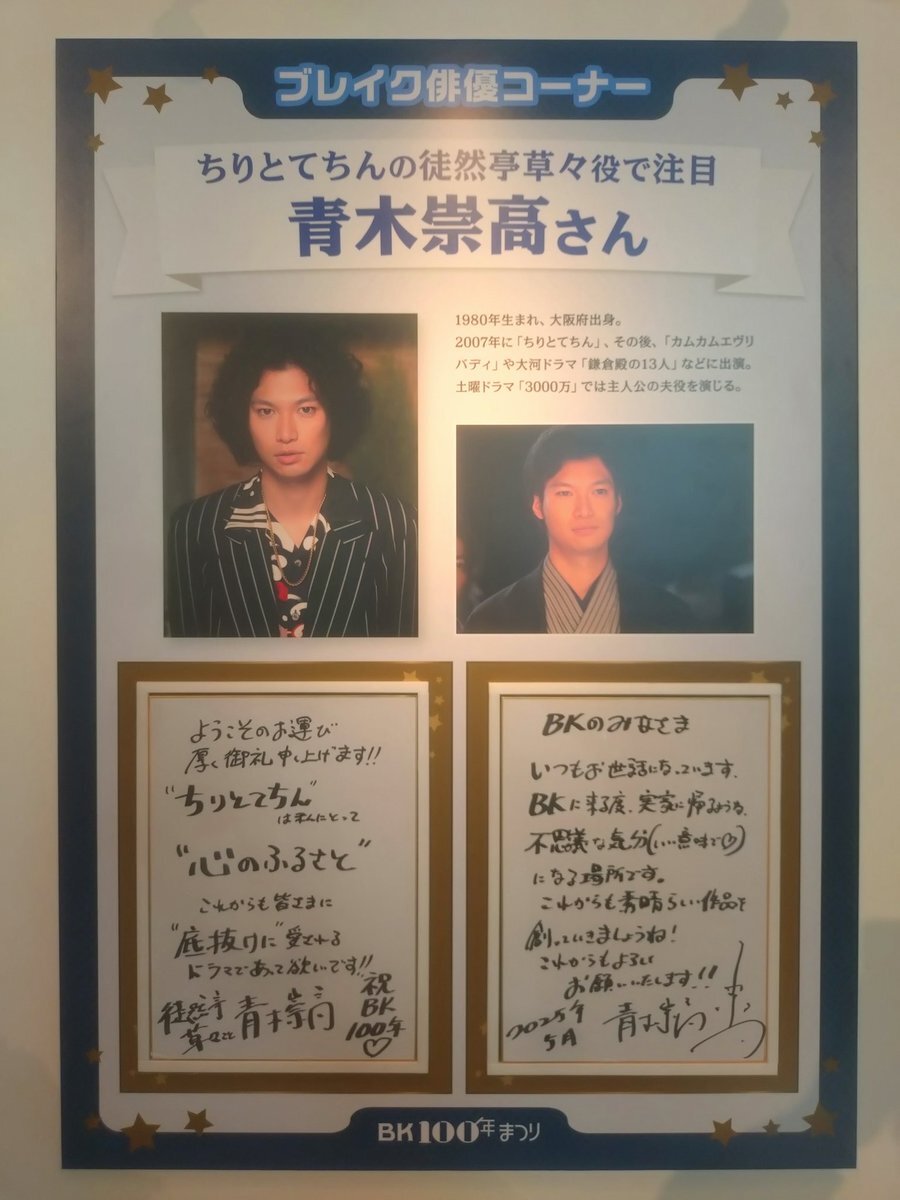 ブレイク俳優コーナー
ちりとてちんの徒然亭草々役で注目
青木崇高さん
1980年生まれ、大阪府出身。
2007年に「ちりとてちん」、その後、「カムカムエヴリ
バディ」や大河ドラマ「鎌倉殿の13人」などに出演。
土曜ドラマ「3000万」では主人公の夫役を演じる。
ようこそのお運び
厚く御礼申し上げます!!
"ちりとてちん"
は私にとって
"心のふるさと"
これからも皆さまに
"底抜けに"愛される
ドラマであって欲いです!!
徒然亭
草々こと
青木崇高
祝
BK
100年
♡
BKのみなさま
いつもお世話になっています.
BKに来る度、実家に帰るような、
不思議な気分(いい意味で♡)
になる場所です。
これからも素晴らしい作品を
創っていきましょうね!
これからもよろしく
お願いいたします!!
2025年
5月
青木崇高
BK100年まつり